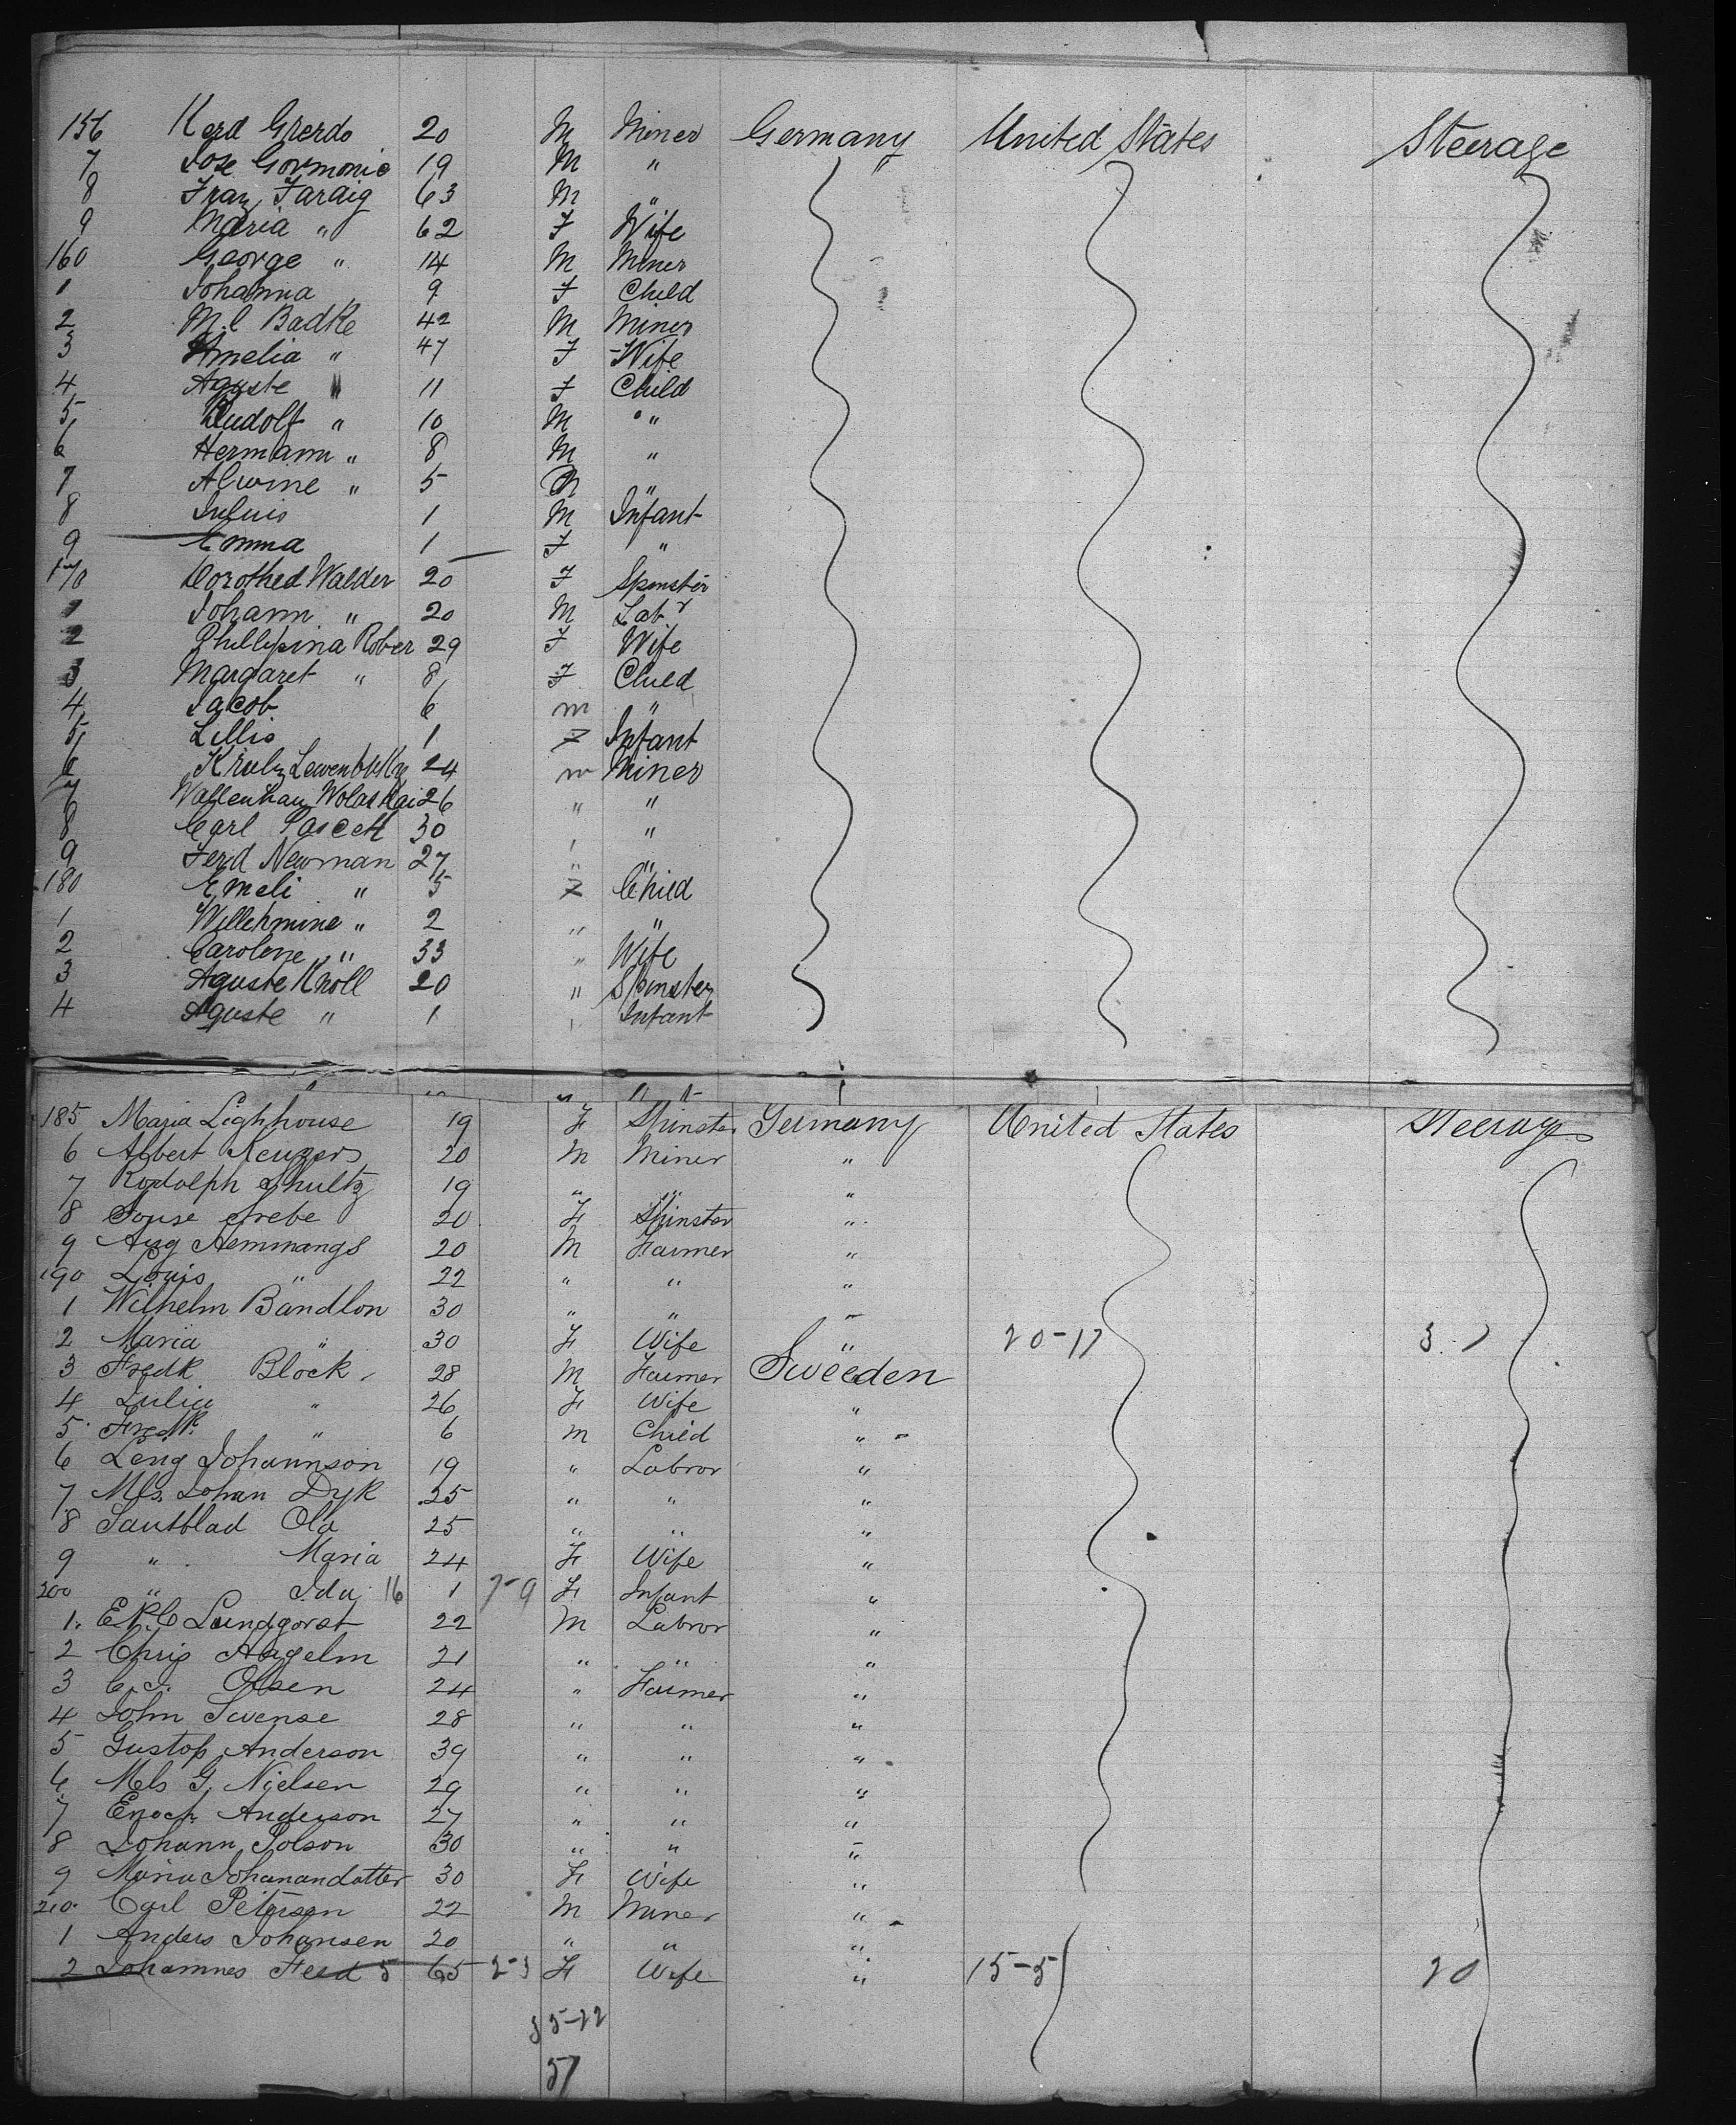 156 Kerd Grerdo 20 M Miner Germany United States Steerage
7 Jose Gormonie 19 M "
8 Franz Faraig 63 M "
9 Maria " 62 F Wife
160 George " 14 M Miner
1 Johanna 9 F Child
2 M.C Badke 42 M Miner
3 Amelia " 47 F Wife
4 Aguste " 11 F Child
5 Rudolf " 10 M "
6 Hermann " 8 M "
7 Alwine " 5 M "
8 Julius 1 M Infant
9 Emma 1 F "
170 Dorothed Walder 20 F Spinster
1 Johann " 20 M Labr
2 Phillipina Rober 29 F Wife
3 Margaret " 8 F Child
4 Jacob 6 m "
5 Lillis 1 F Infant
6 24 m Miner
7 26 " "
8 Carl 30 " "
9 Ferd Newman 27 " "
180 Emeli " 5 F Child
1 Willehmine " 2 " "
2 Carolene " 33 " Wife
3 Aguste Knoll 20 " Spinster
4 Aguste " 1 " Infant
185 Maria Lighhouse 19 F Spinster Germany United States Steerage
6 Albert 20 M Miner "
7 Rodolph Shultz 19 " " "
8 20 F Spinster "
9 Aug Hemmangs 20 M Farmer "
190 Louis " 22 " " "
1 Wilhelm Bandlon 30 " " "
2 Maria " 30 F Wife " 20-17 3
3 Fredk Block 28 M Farmer Sweeden
4 Julia " 26 F Wife "
5 Fredk " 6 M Child "
6 Leng Johannson 19 " Labror "
7 Mls Johan Dyk 25 " " "
8 Santblad Ola 25 " " "
9 " Maria 24 F Wife "
200 " Ida 16 1 7-9 F Infant "
1 Lundgorst 22 M Labror "
2 Chris Angelm 21 " " "
3 C.J. Olsen 24 " Farmer "
4 John Swense 28 " " "
5 Gustop Anderson 39 " " "
6 Mls G. Nielsen 29 " " "
7 Enoch Anderson 27 " " "
8 Johann Polson 30 " " "
9 Maria Johanandatter 30 F Wife "
210 Carl Petersen 22 M Miner "
1 Anders Johansen 20 " " "
2 Johamnes Feed 5 65 2-3 F Wife " 15-5 20
5-22
57